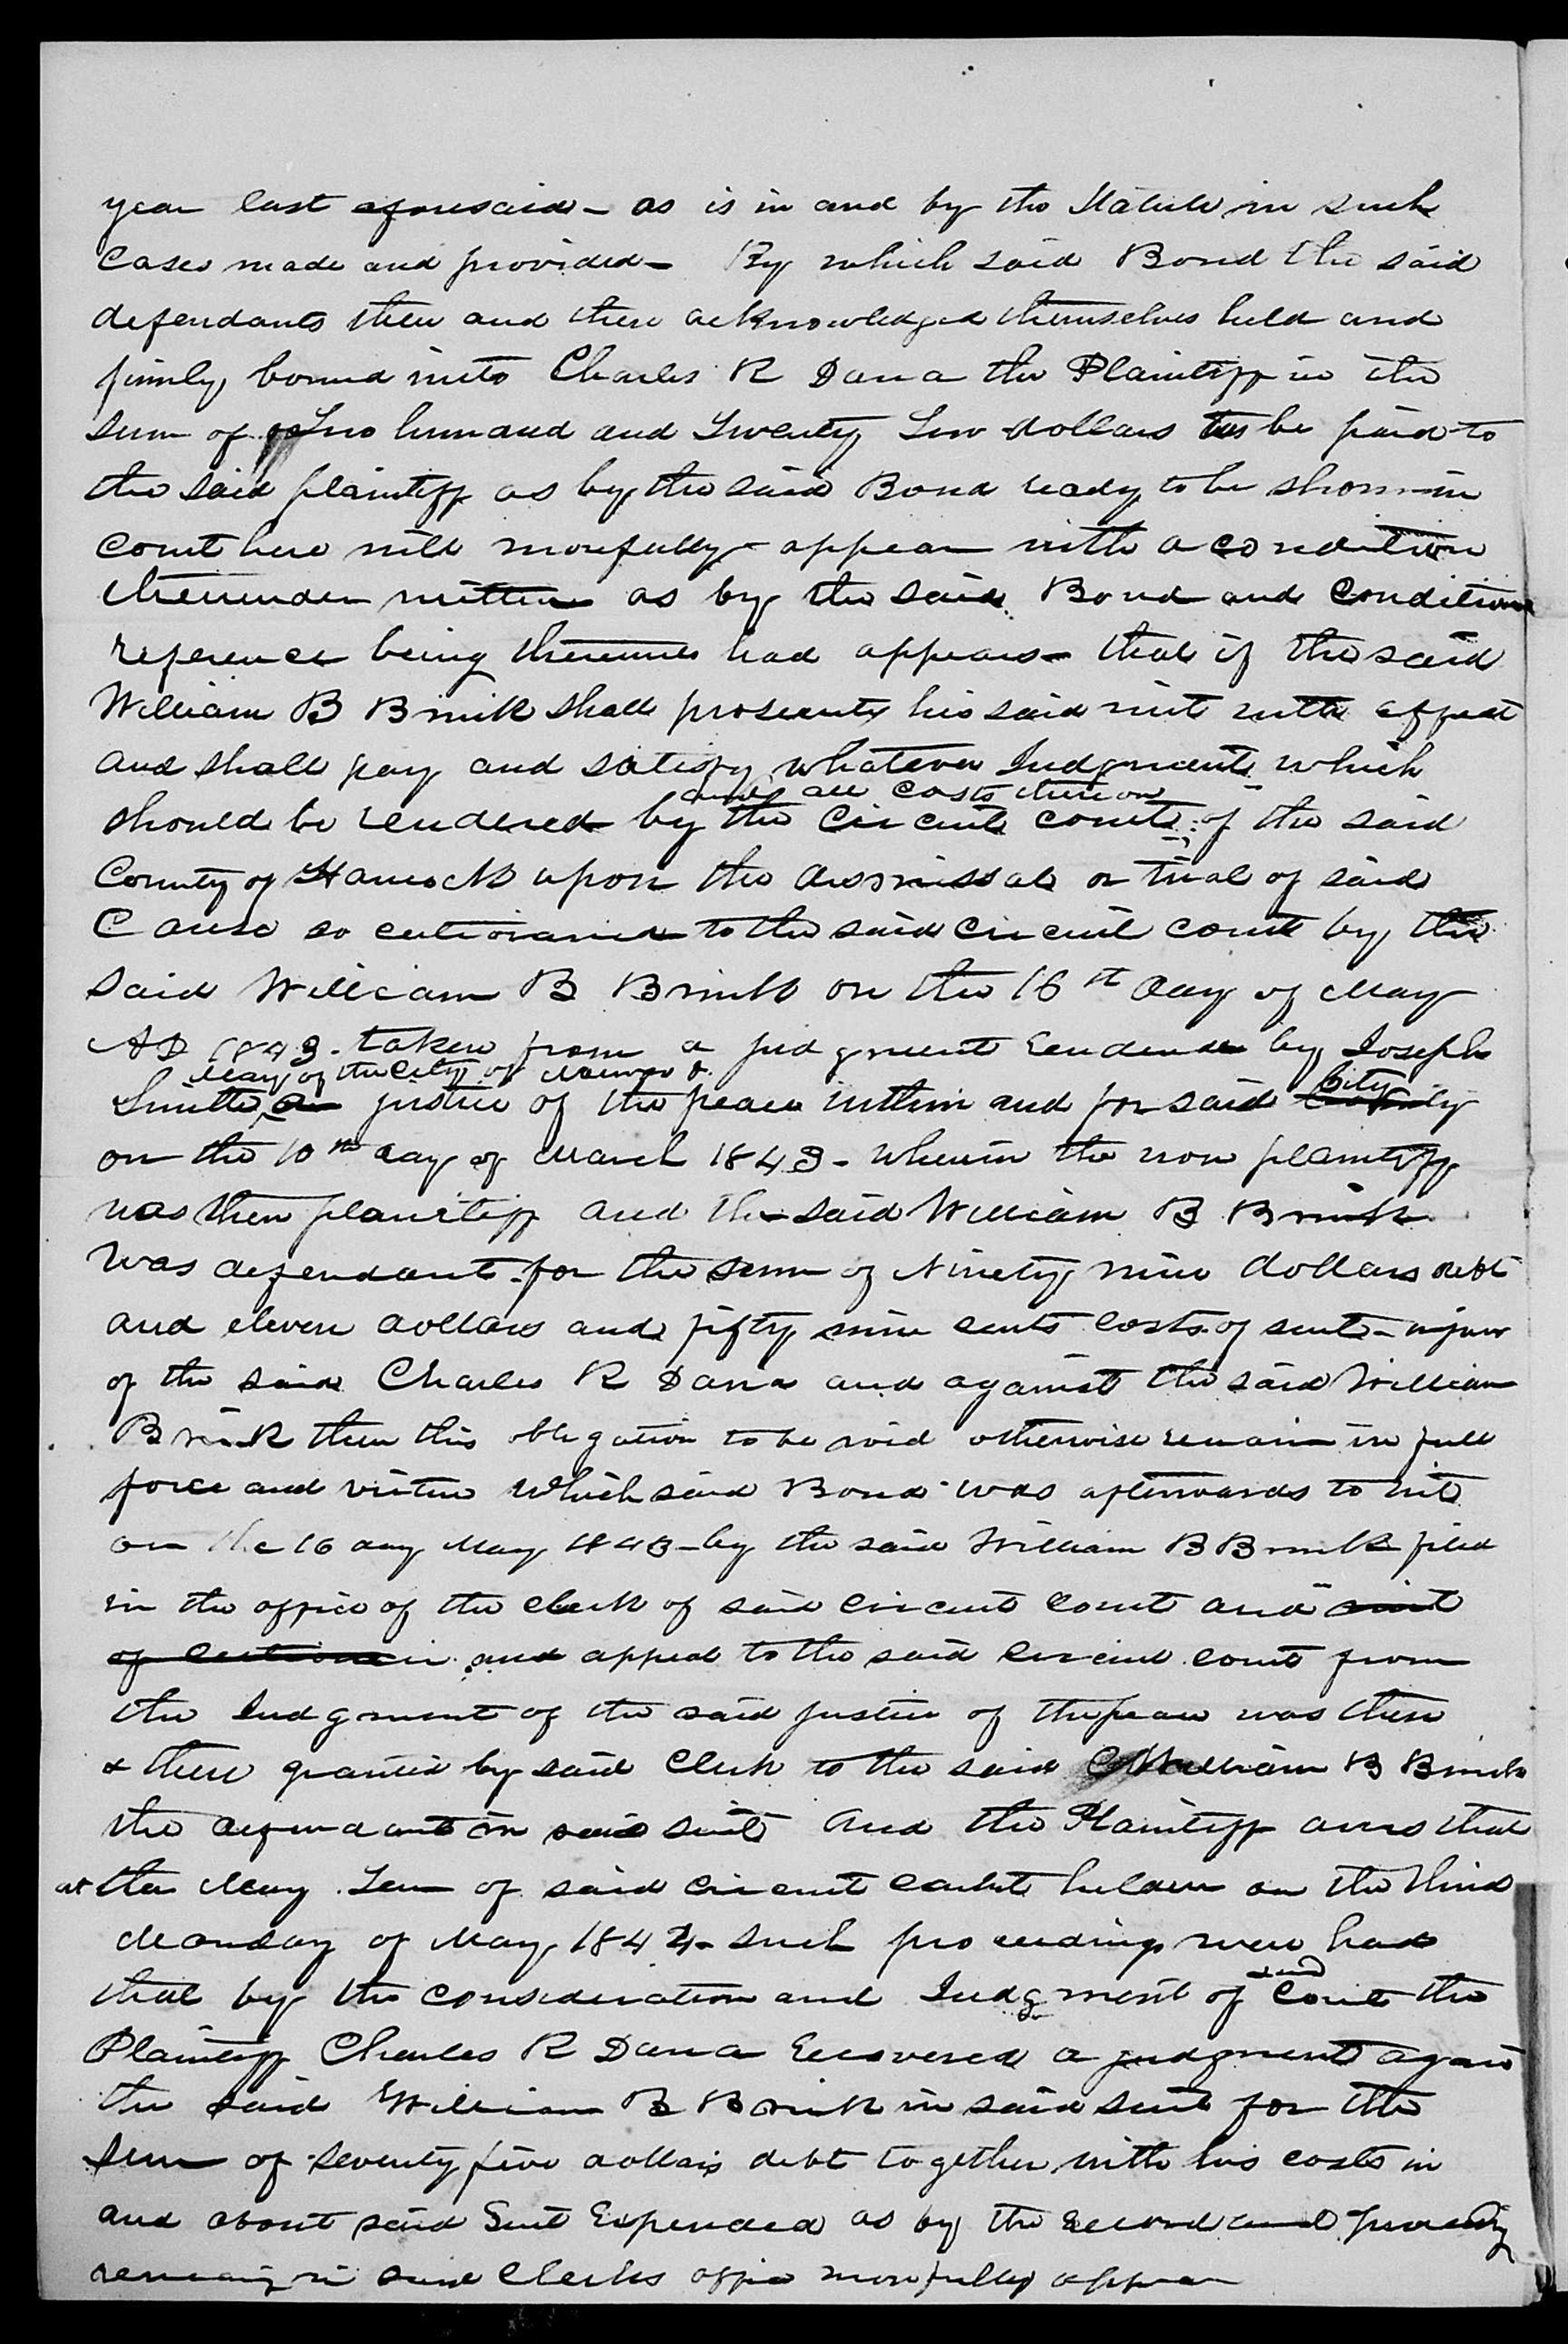 year last aforesaid – as is in and by the Statute in such
Cases made and provided – By which said Bond the said
defendants then and there acknowledged themselves held and
firmly bound unto Charles R Dana the Plaintiff in the
Sum of Two hundred and Twenty Two dollars to be paid to
the said plaintiff as by the said Bond ready to be shown in
Court here will more fully appear with a condition
thereunder written as by the said Bond and Condition
reference being thereunto had appears – that if the said
William B Brink shall prosecute his said writ with effect
and shall pay and satisfy whatever Judgment which
and all costs thereon
should be rendered by the Circuit court of the said
County of Hancock upon the dismissal or trial of said
Cause so certioraried to the said circuit court by the
Said William B Brink on the 16th day of May
AD 1843 – taken from a judgment rendered by Joseph
Mayor of the City of Nauvoo &
Smith a justice of the peace within and for said County City
on the 10th day of March 1843 – wherein the now plaintiff
was then plaintiff and the said William B Brink
was defendant for the sum of Ninety nine dollars debt
and eleven dollars and fifty nine cents costs of suit – in favor
of the said Charles R Dana and against the said William
Brink then this obligation to be void otherwise remain in full
force and virtue which said Bond was afterwards to wit
on the 16 day May 1843 – by the said William B Brink filed
in the office of the clerk of said circuit court and writ
of certiorari and appeal to the said circuit court from
the Judgment of the said justice of the peace was then
& there granted by said Clerk to the said William B Brink
the defendant in said suit And the Plaintiff avers that
at the May Term of said circuit court holden on the third
Monday of May 1844 – such proceedings were had
that by the consideration and Judgment of said Court the
Plaintiff Charles R Dana Recovered a judgment against
the said William B Brink in said suit for the
Sum of seventy five dollars debt together with his costs in
and about said Suit Expended as by the Record and proceeding
remaining in said Clerks office more fully appear